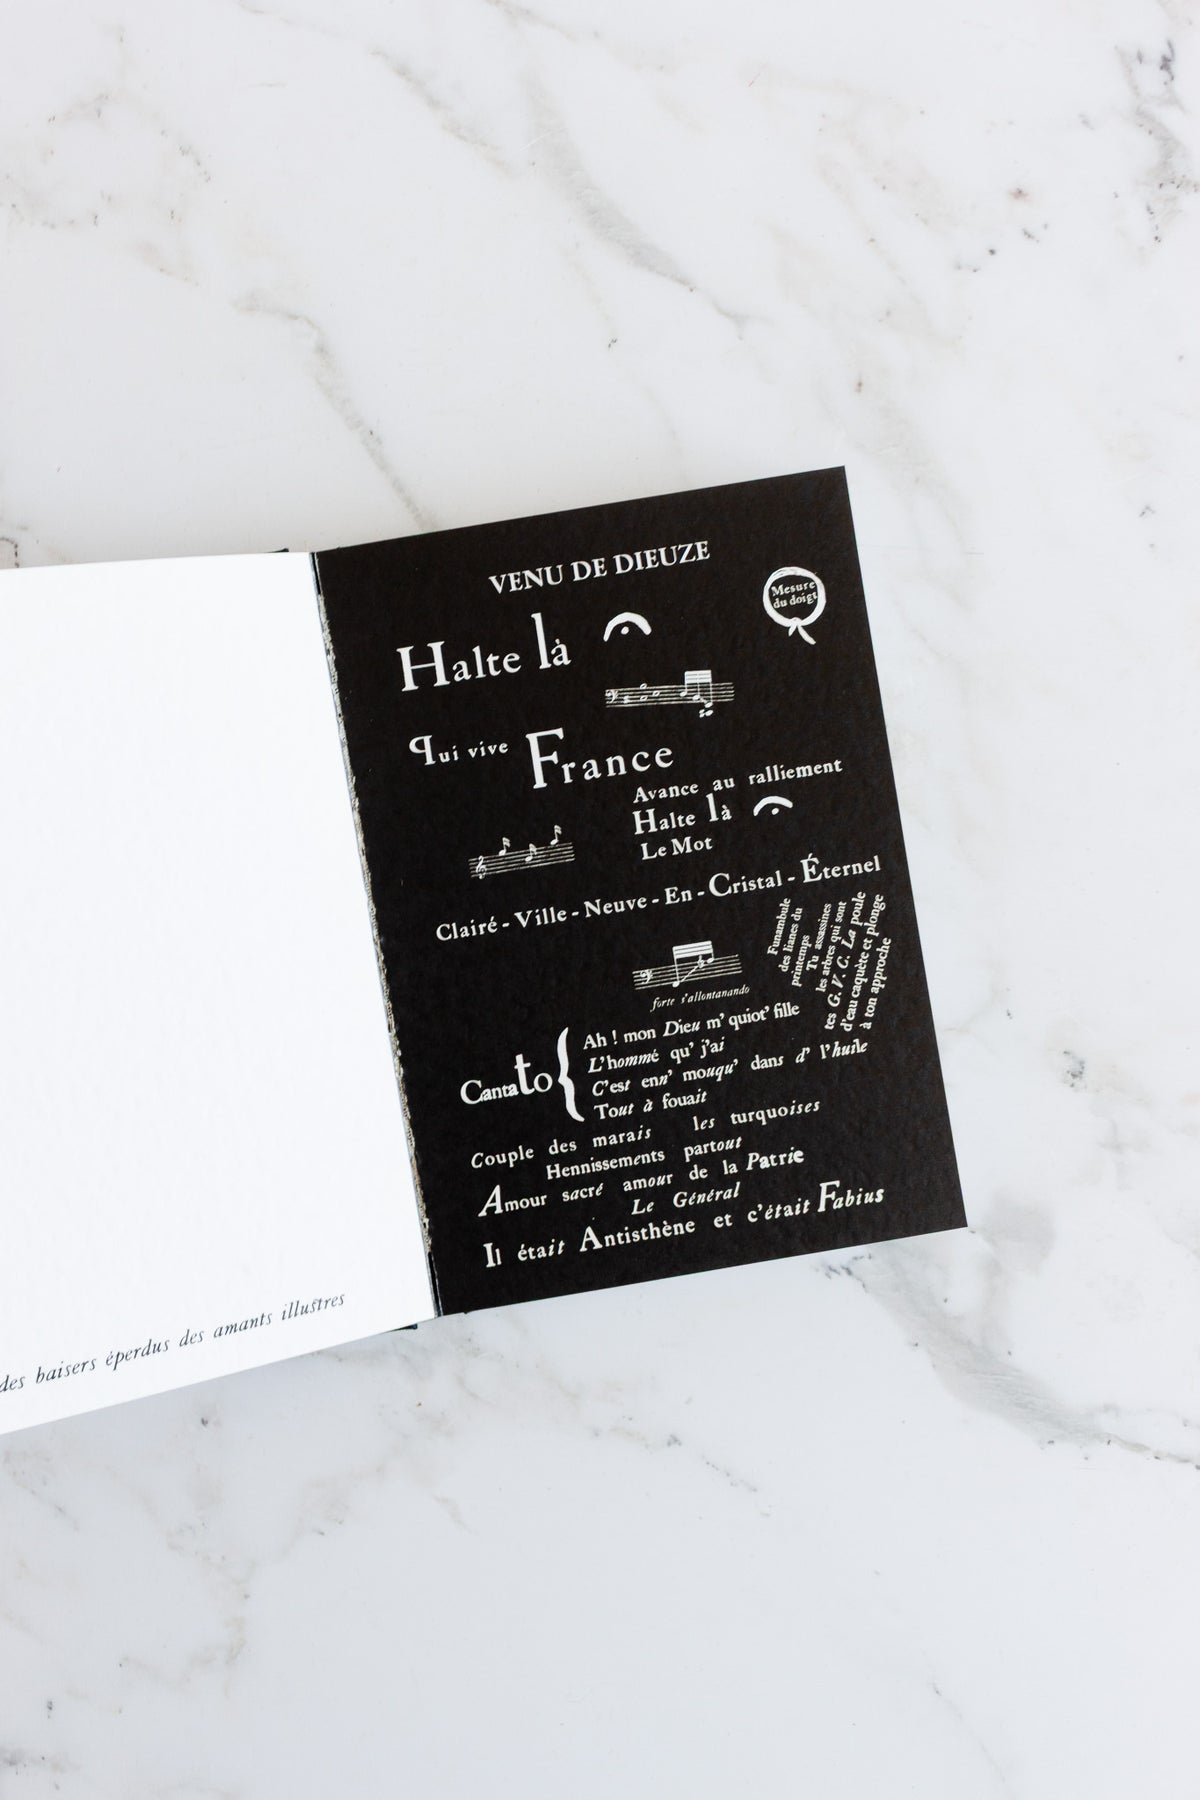 des baisers éperdus des amants illustres
VENU DE DIEUZE
Mesure
du doigt
Halte là
Qui vive France
Avance au ralliement
Halte là
Le Mot
Clairé-Ville-Neuve-En-Cristal-Éternel
Funambule
des lianes du
printemps
Tu assassines
les arbres qui sont
tes G. V. C. La poule
d'eau caquète et plonge
à ton approche
forte s'allontanando
Cantato
Ah ! mon Dieu m' quiot' fille
L'hommé qu' j'ai
C'est enn' mouqu' dans d' l'huile
Tout à fouait
Couple des marais les turquoises
Hennissements partout
Amour sacré amour de la Patrie
Le Général
Il était Antisthène et c'était Fabius